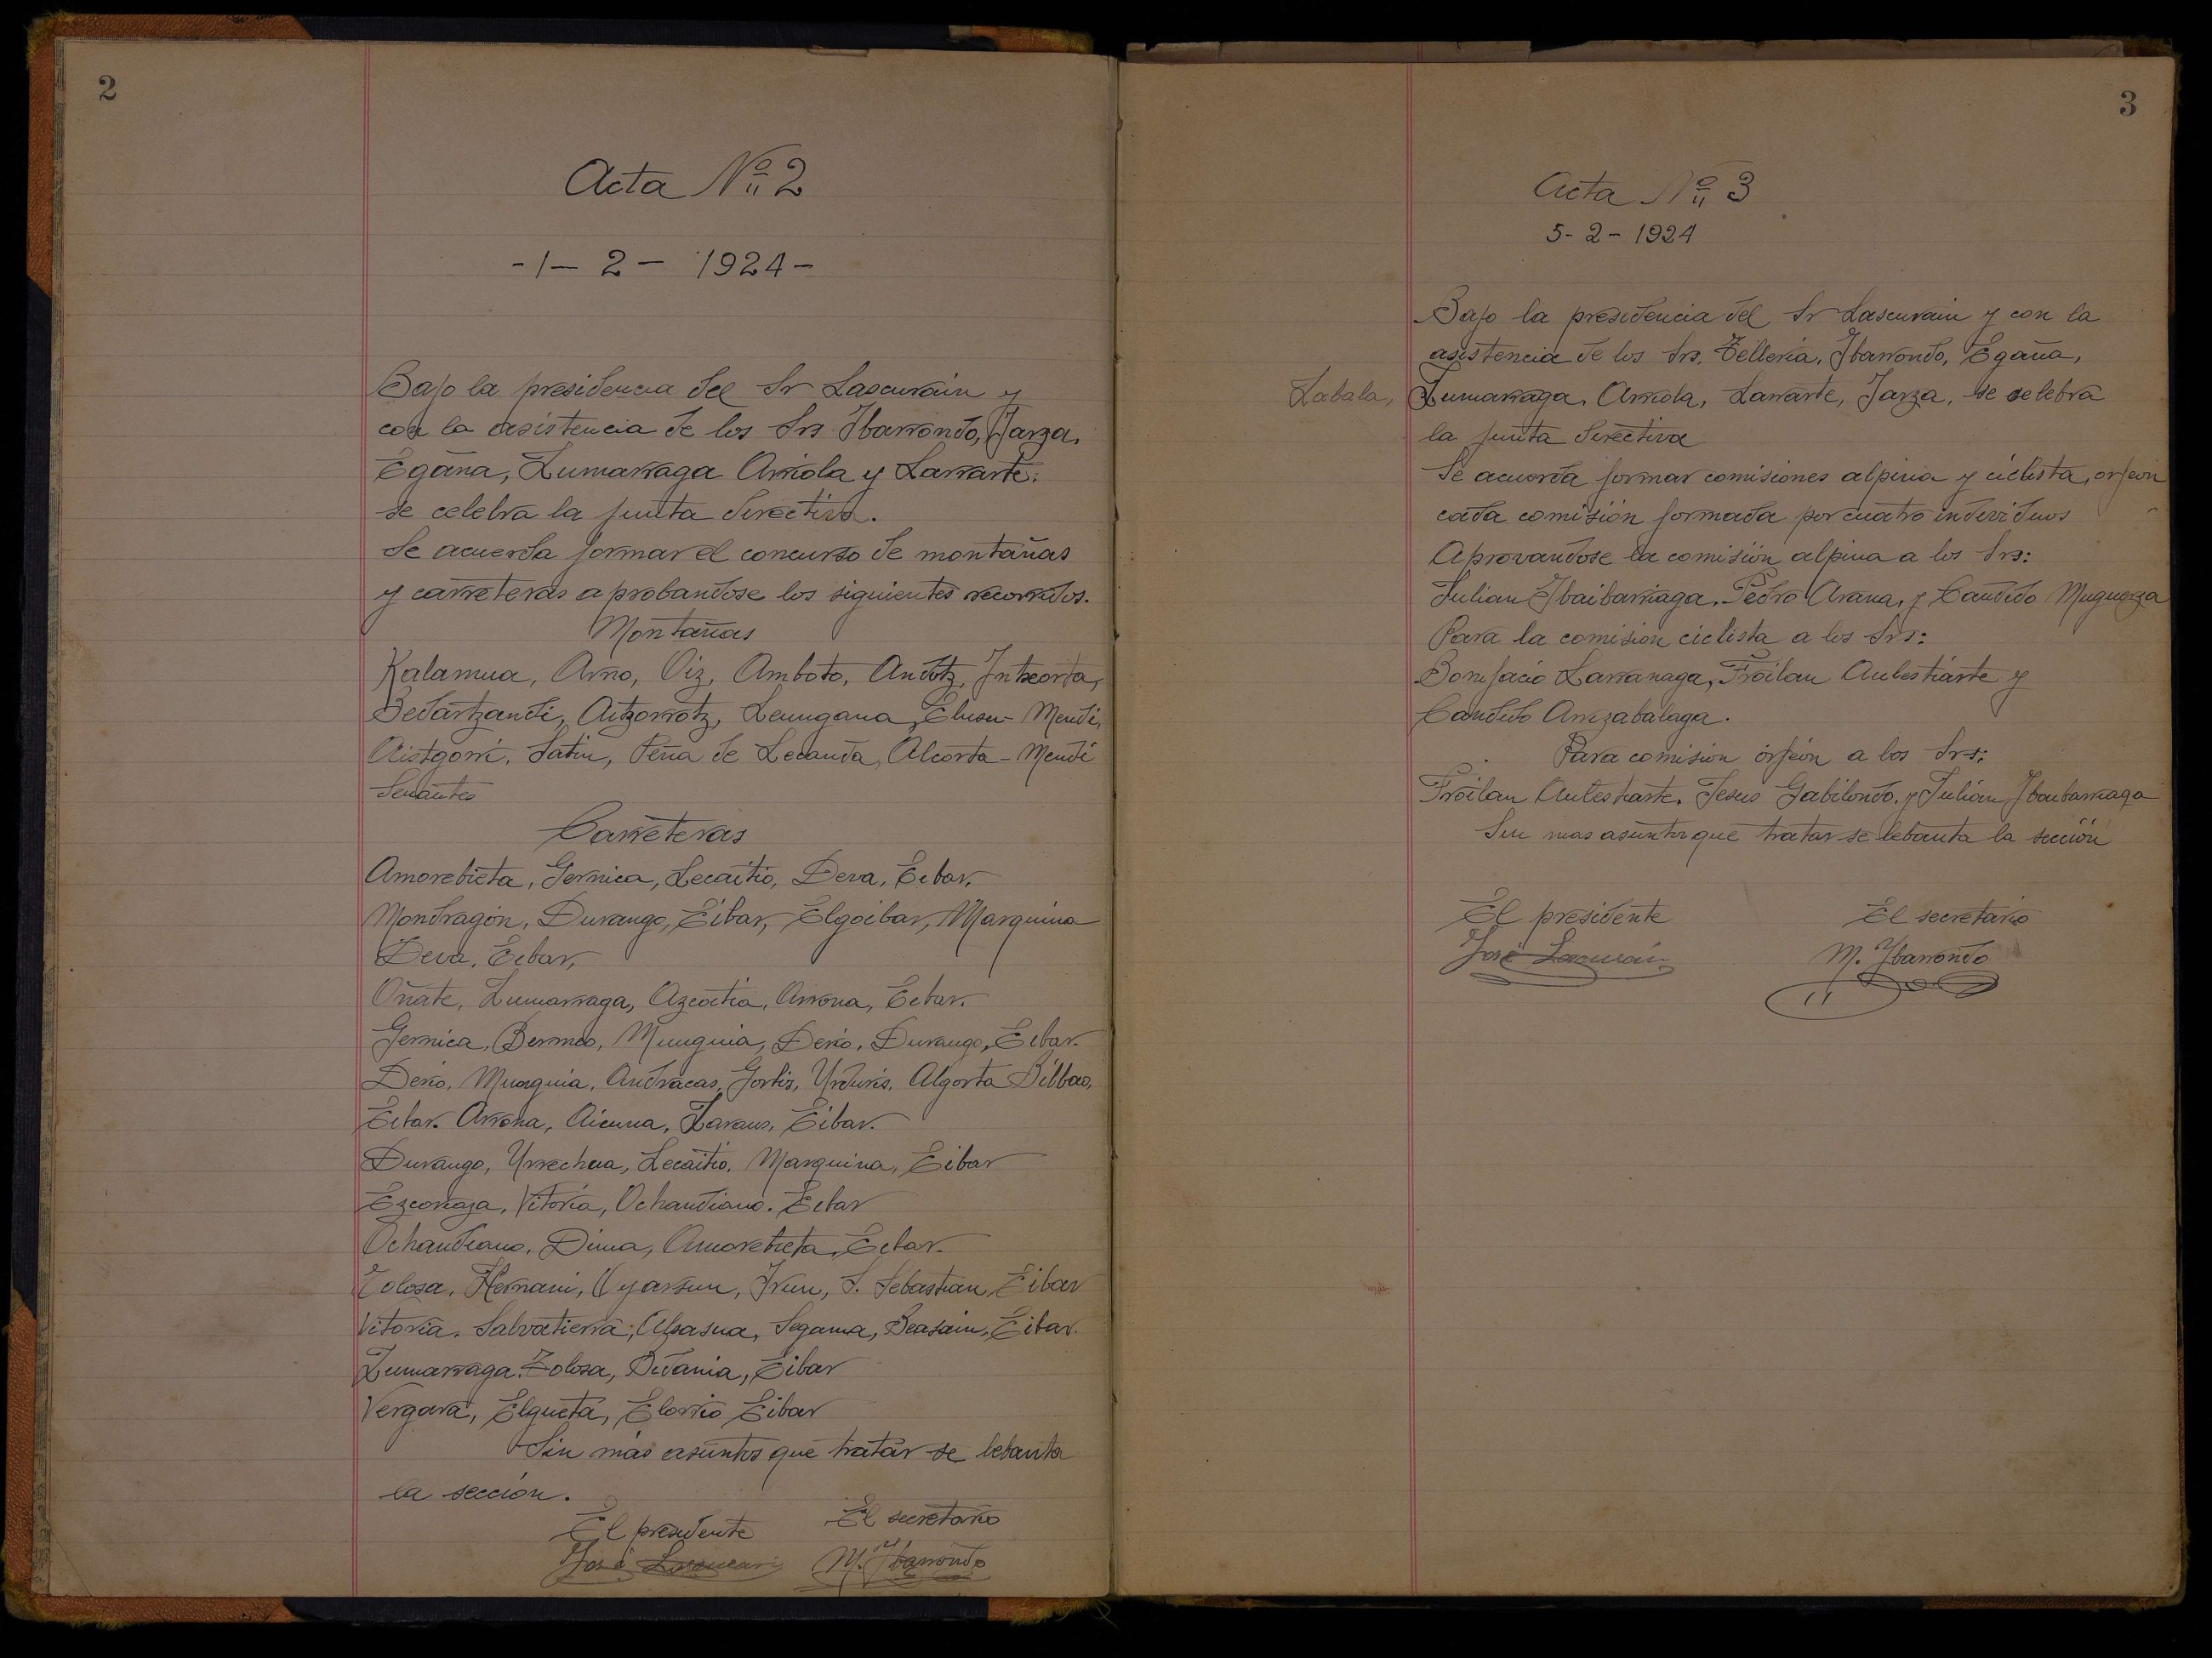 2
Acta Nº 2
-1- 2 - 1924-
Bajo la presidencia del Sr Lascurain y
con la asistencia de los Srs Ibarrondo, Jarza,
Egaña, Zumarraga Arriola y Larrarte.
se celebra la junta directiva.
Se acuerda formar el concurso de montañas
y carreteras aprobandose los siguientes recorridos.
Montañas
Kalamua, Arno, Oiz, Amboto, Andotz, Intxorta,
Bedartzandi, Aitzorrotz, Leungana, Elusu-Mendi,
Aistgorri, Satiu, Peña de Lecanda, Alcorta-Mendi
Serantes
Carreteras
Amorebieta, Gernica, Lecaitio, Deva, Eibar.
Mondragón, Durango, Eibar, Elgoibar, Marquina
Deva, Eibar,
Oñate, Zumarraga, Azcoitia, Arrona, Eibar.
Gernica, Bermeo, Munguia, Derio, Durango, Eibar.
Derio, Munguia, Andracas, Gorliz, Urduris, Algorta Bilbao,
Eibar. Arrona, Aicurna, Zaraus, Eibar.
Durango, Urrechua, Lecaitio, Marquina, Eibar
Ezcoriaza, Vitoria, Ochandiano. Eibar
Ochandiano, Dima, Amorebieta, Eibar.
Tolosa, Hernani, Oyarsun, Irun, S. Sebastian, Eibar
Vitoria, Salvatierra, Alsasua, Segama, Beasain, Eibar.
Zumarraga. Tolosa, Bidania, Eibar
Vergara, Elgueta, Elorrio Eibar
Sin más asuntos que tratar se lebanta
la sección.
El presidente El secretario
José Lascurain M. Ibarrondo
3
Acta Nº 3
5- 2 - 1924
Bajo la presidencia del Sr Lascurain y con la
asistencia de los Srs. Telleria, Ibarrondo, Egaña,
Zabala, Zumarraga, Arriola, Larrarte, Jarza, se celebra
la junta directiva
Se acuerda formar comisiones alpina y ciclista, orfeón
cada comisión formada por cuatro individuos
Aprovandose la comisión alpina a los Srs:
Julian Ibaibarriaga, Pedro Arana, y Candido Muguerza
Para la comision ciclista a los Srs:
Bonifacio Larrañaga, Froilan Aulestiarte y
Candido Arrizabalaga.
Para comision orfeón a los Srs:
Froilan Aulestiarte, Jesus Gabilondo, y Julián Ibaibarriaga
Sin mas asuntos que tratar se lebanta la sección
El presidente El secretario
José Lascurain M. Ibarrondo